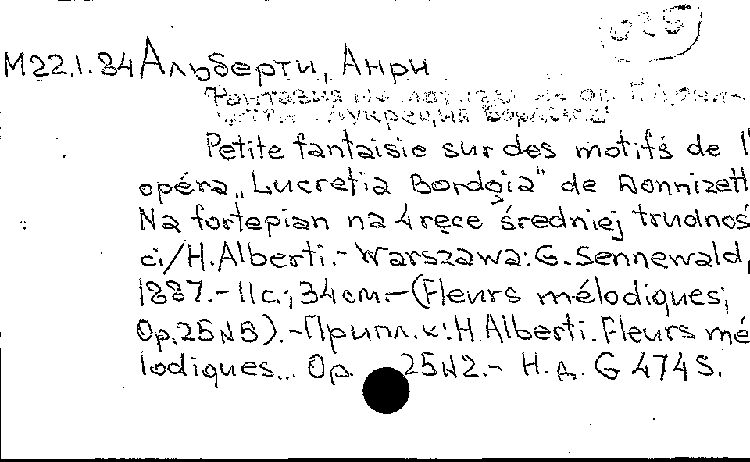 025
М22.1.84 Альберти, Анри
Фантазия на мотивы из оп. Г. Дони-
цетти "Лукреция Борджиа"
Petite fantaisie sur des motifs de l'
opéra „Lucretia Bordgia" de Donnizett
Na fortepian na 4 ręce średniej trudnoś
ci/H.Alberti.- Warszawa: G. Sennewald,
1887.-11с.; 34 см.-(Fleurs mélodiques;
Op.25 N
).-Припл. к: H Alberti. Fleurs mé
lodiques... Op. 25 N2.- Н.д. G 474 S.